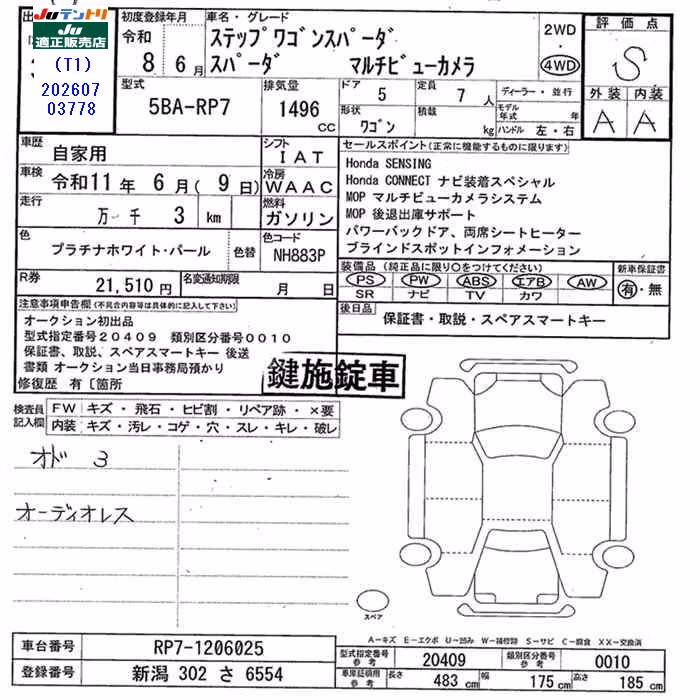 Ju テントリ
Ju 適正販売店
(T1)
202607
03778
初度登録年月
令和
8 年 6 月
車名・グレード
ステップワゴンスパーダ
スパーダ マルチビューカメラ
2WD
・
4WD
評価点
S
外装 内装
A A
型式
5BA-RP7
排気量
1496 CC
ドア 5
定員 7 人
形状 ワゴン
積載 kg
ディーラー・並行
モデル年式 年
ハンドル 左・右
車歴 自家用
シフト IAT
車検 令和11 年 6 月 ( 9 日)
冷房 WAAC
走行 万 千 3 km
燃料 ガソリン
色 プラチナホワイト・パール
色替
色コード NH883P
R券 21,510 円
名変通知期限 月 日
セールスポイント(正常に機能するものに限ります)
Honda SENSING
Honda CONNECT ナビ装着スペシャル
MOP マルチビューカメラシステム
MOP 後退出庫サポート
パワーバックドア、両席シートヒーター
ブラインドスポットインフォメーション
装備品 (純正品に限り○をつけてください)
PS PW ABS エアB AW
SR ナビ TV カワ
新車保証書
有・無
後日品
保証書・取説・スペアスマートキー
注意事項申告欄(不具合内容等は具体的に記入して下さい)
オークション初出品
型式指定番号20409 類別区分番号0010
保証書、取説、スペアスマートキー 後送
書類 オークション当日事務局預かり
修復歴 有〔箇所
鍵施錠車
検査員記入欄
FW キズ・飛石・ヒビ割・リペア跡・×要
内装 キズ・汚レ・コゲ・穴・スレ・キレ・破レ
オド 3
オーディオレス
スペア
A-キズ E-エクボ U-凹み W-補修跡 S-サビ C-腐食 XX-交換済
車台番号 RP7-1206025
登録番号 新潟 302 さ 6554
型式指定番号 参考 20409
類別区分番号 参考 0010
車庫証明用 参考
長さ 483 cm
幅 175 cm
高さ 185 cm